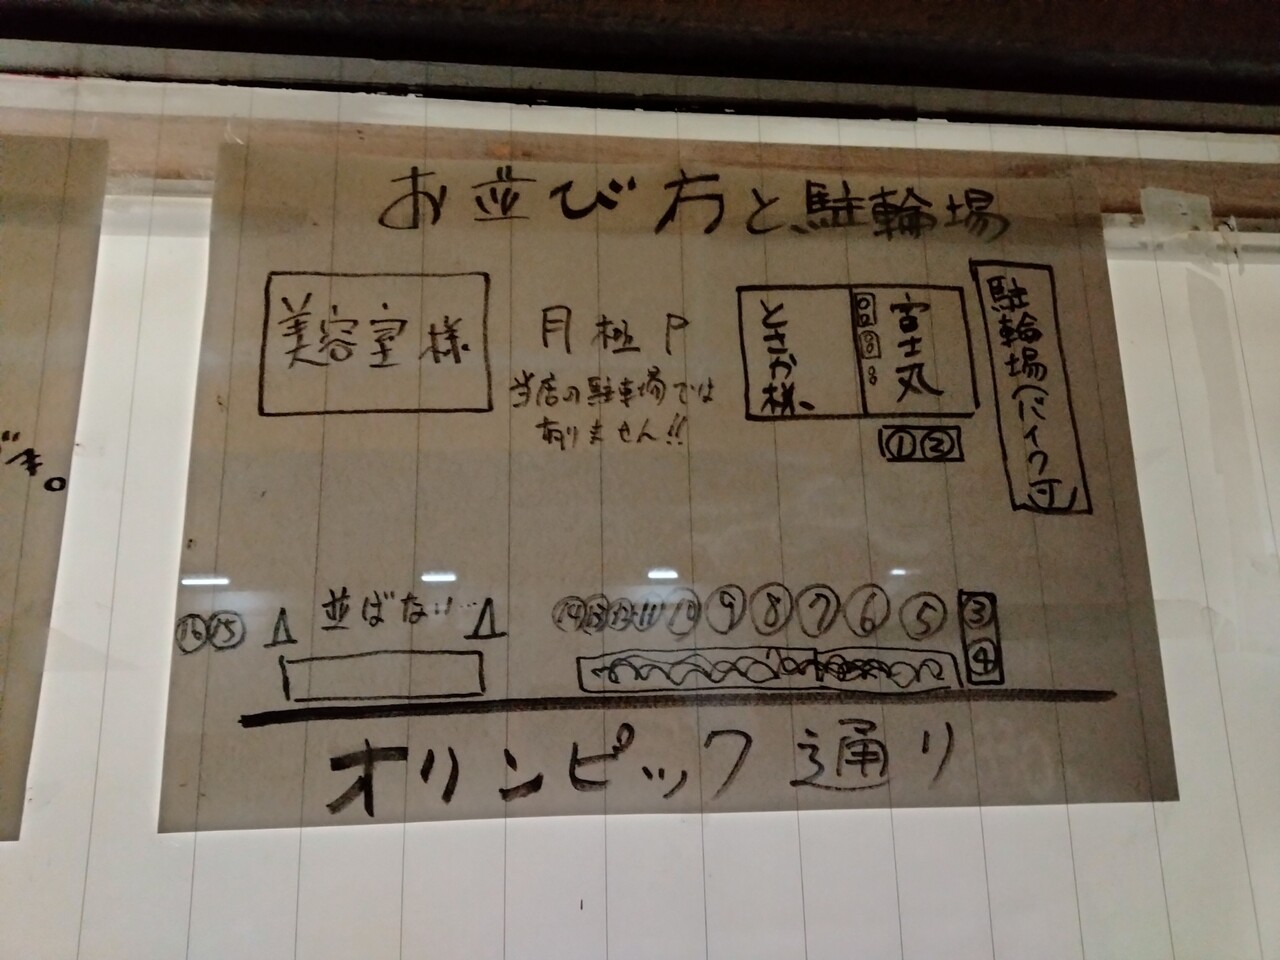 お並び方と、駐輪場
美容室様
月極P
当店の駐車場では
ありません!!
ときか様、
富士丸
①②
駐輪場(バイク可)
並ばない…
⑯⑮
⑭⑬⑫⑪⑩⑨⑧⑦⑥⑤③
④
オリンピック通り
す。